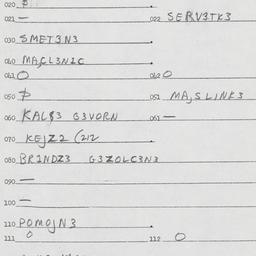 020
021 — 022 SERV3TK3
030 SMET3N3
040
041 O 042 O
050 051 MA,SLINK3
060 G3VORN 061 —
070 KEJZ2 (212
080 BR2NDZ3 G3ZOLC3N3
090 —
100 —
110 POMOJN3
111 O 112 O